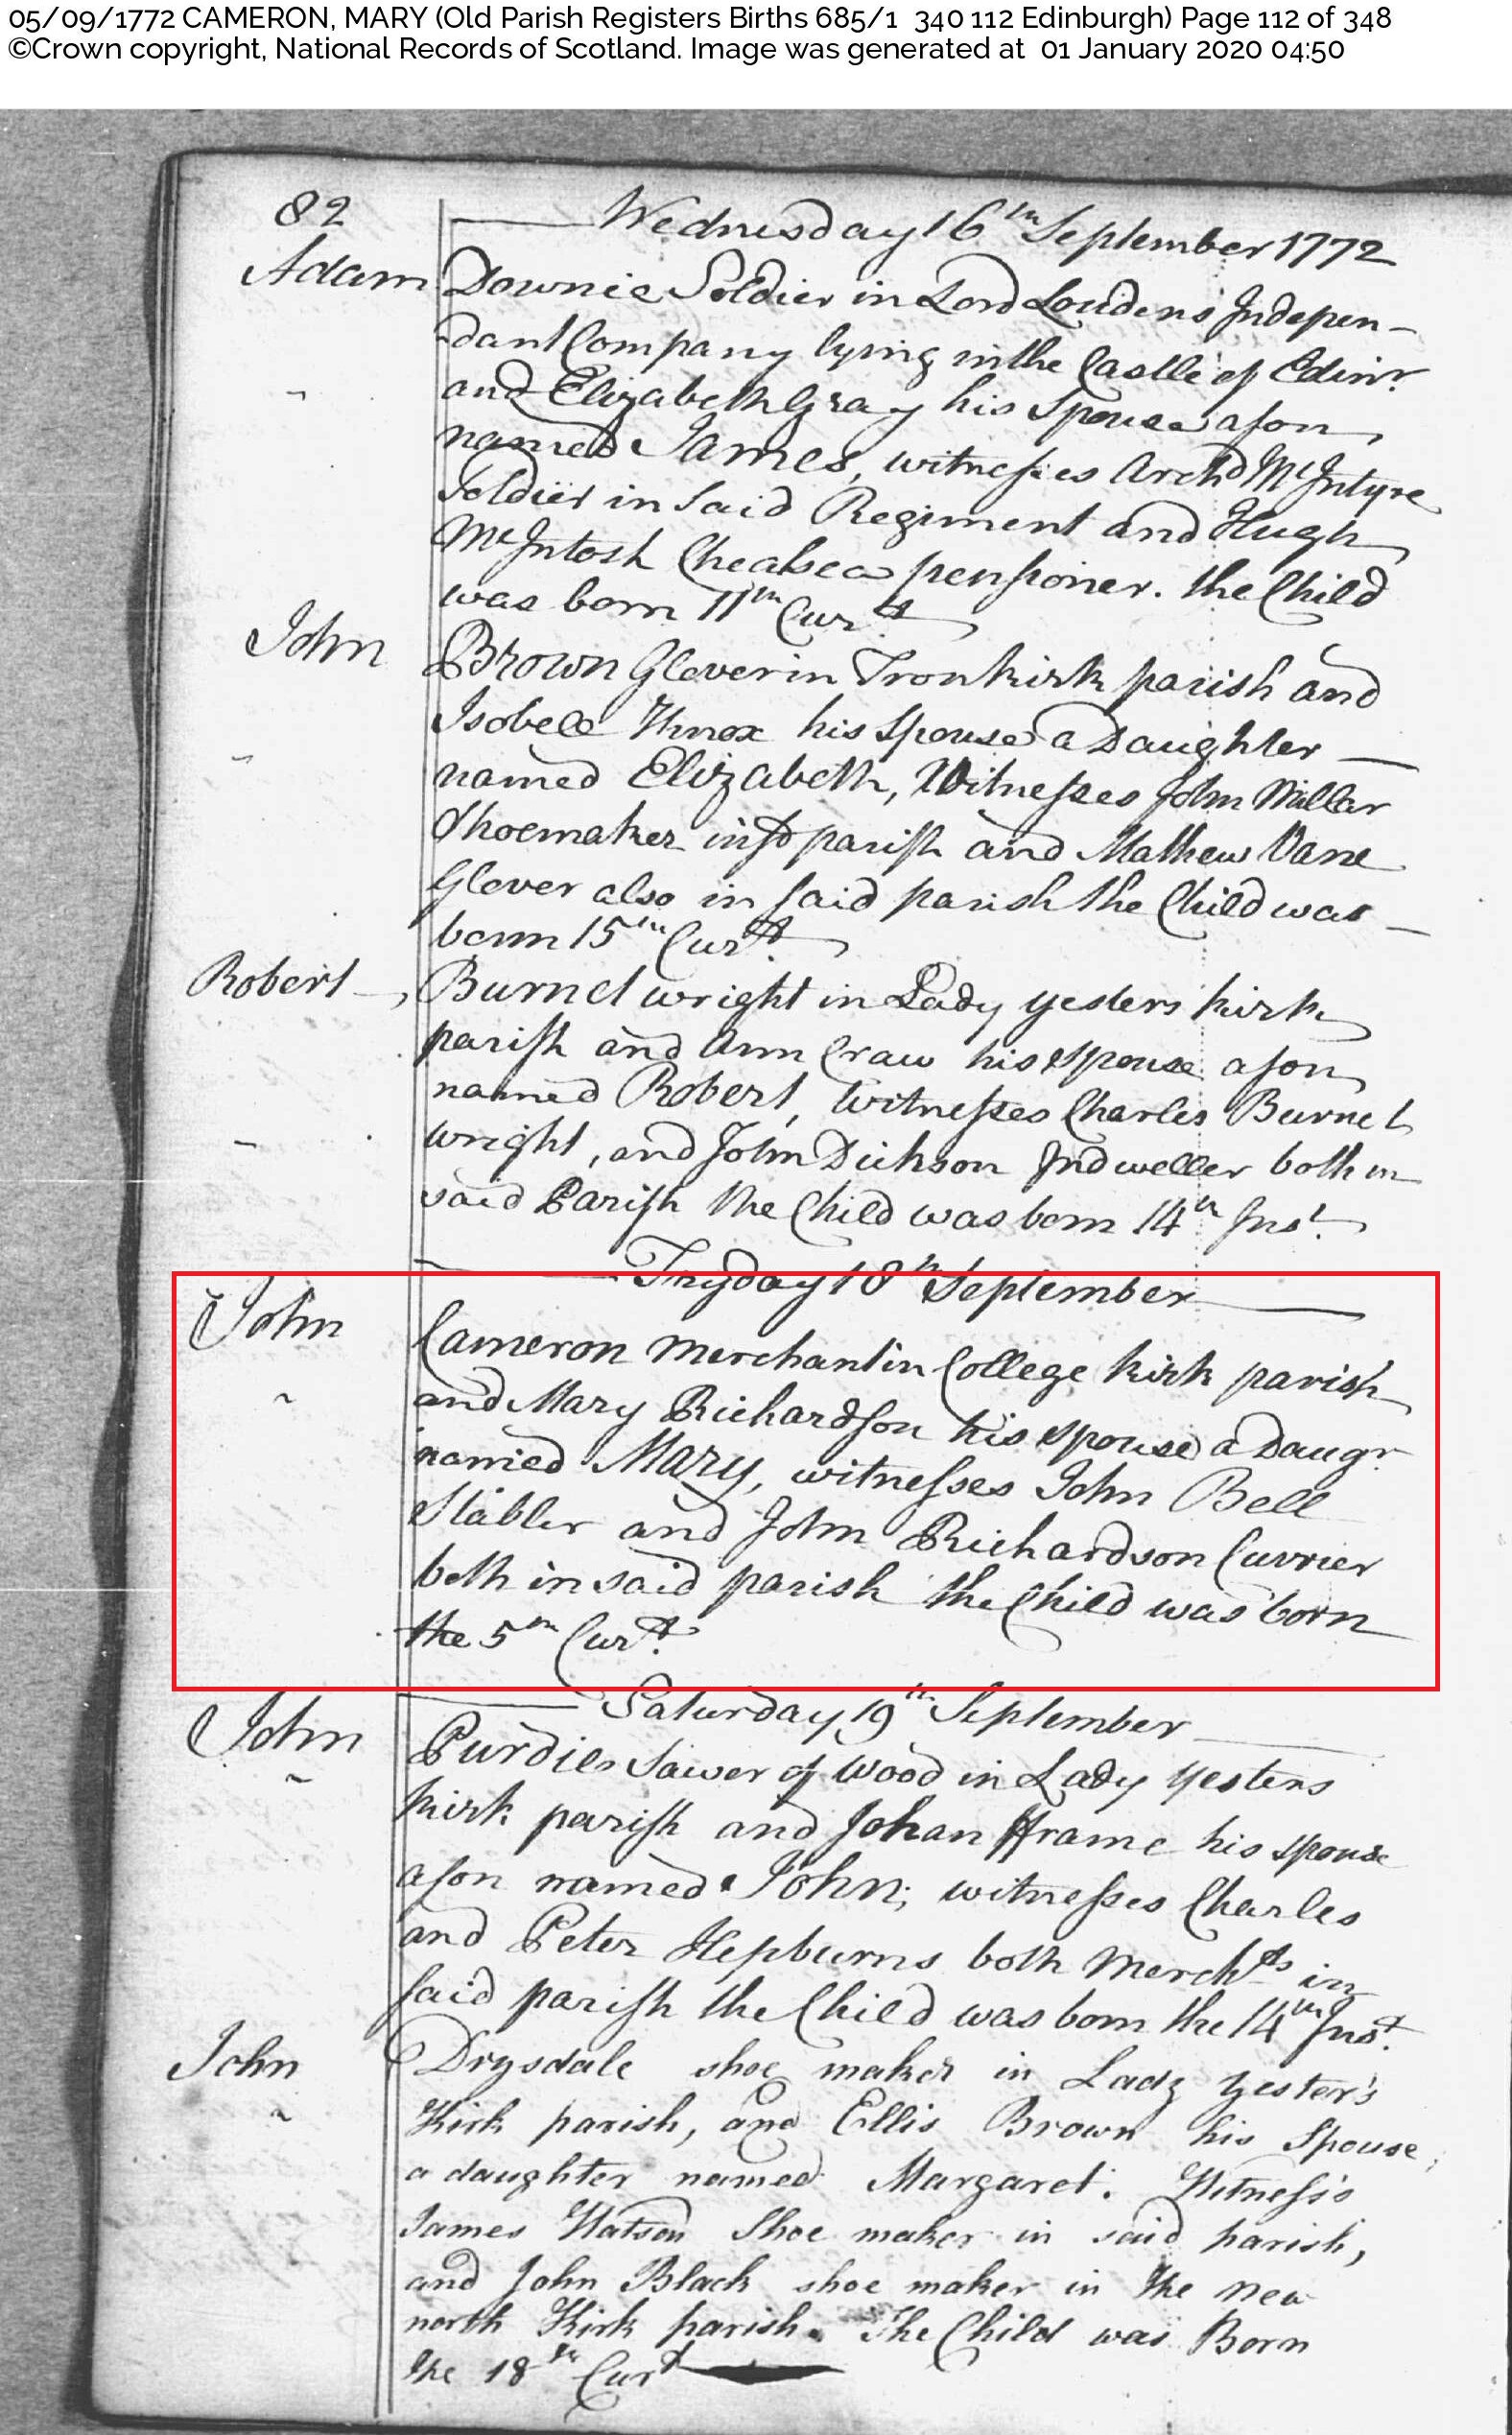 05/09/1772 CAMERON, MARY (Old Parish Registers Births 685/1 340 112 Edinburgh) Page 112 of 348
©Crown copyright, National Records of Scotland. Image was generated at 01 January 2020 04:50
82
Wednesday 16th September 1772
Adam Downie Soldier in Lord Loudens Indepen-
dant Company lying in the Castle of Edinr.
and Elizabeth Gray his Spouse a son
named James, witnesses Archd McIntyre
Soldier in Said Regiment and Hugh
McIntosh Chealsea pensioner. the Child
was born 11th Curt.
John Brown Glover in Tronkirk parish and
Isobell Knox his Spouse a Daughter
named Elizabeth, Witnesses John Millar
Shoemaker in sd parish and Mathew Vane
Glover also in said parish the Child was
born 15th Curt.
Robert Burnet wright in Lady yesters kirk
parish and Ann Craw his spouse a son
named Robert, Witnesses Charles Burnet
wright, and John Dickson Indweller both in
said Parish the Child was born 14th Inst.
Fryday 18th September
John Cameron Merchant in College kirk parish
and Mary Richardson his spouse a Daugr.
named Mary, witnesses John Bell
Stabler and John Richardson Currier
both in said parish the Child was born
the 5th Curt.
Saturday 19th September
John Purdie Sawer of Wood in Lady yesters
kirk parish and Johan fframe his spouse
a son named John; witnesses Charles
and Peter Hepburns both Merchts in
said parish the Child was born the 14th Inst.
John Drysdale shoe maker in Lady yester's
Kirk parish, and Ellis Brown his Spouse,
a daughter named Margaret. Witness's
James Watson Shoe maker in said parish,
and John Black shoe maker in the new
north Kirk parish. The Child was Born
the 18th Curt